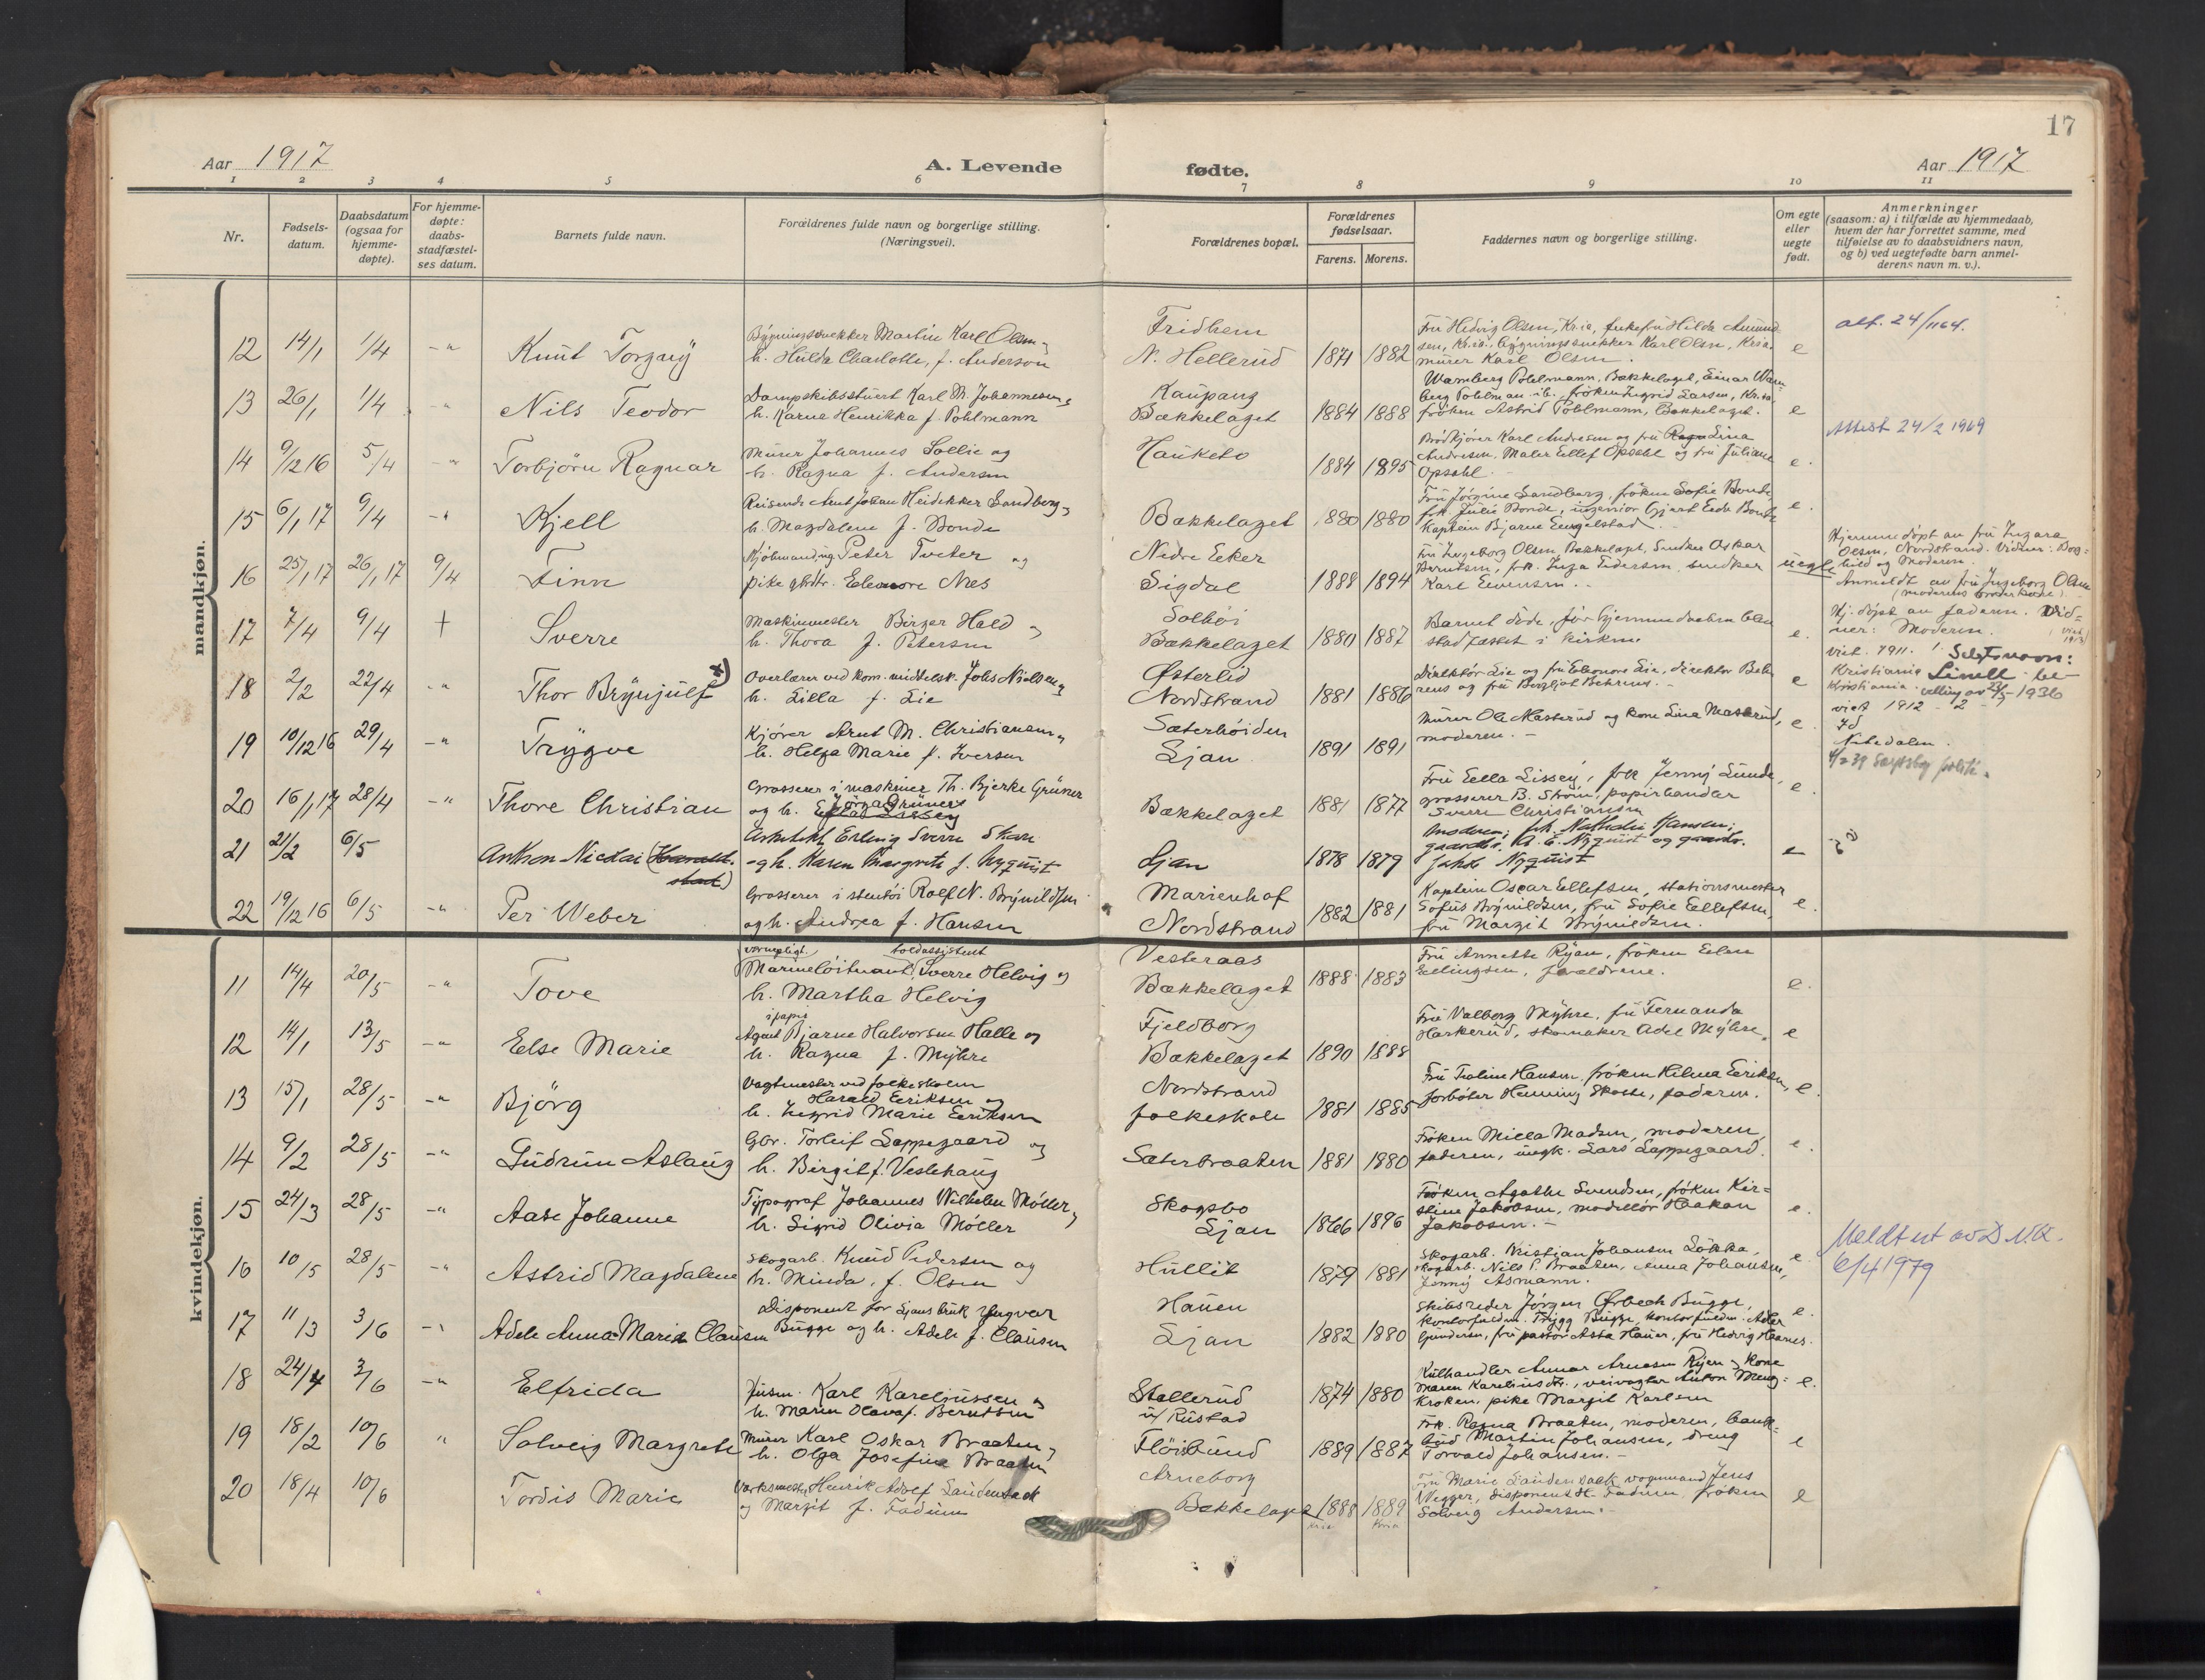 17
Aar 1917
A. Levende
fødte.
Aar 1917
1 2 3 4 5 6 7 8 9 10 11
Nr.
Fødsels-
datum.
Daabsdatum
(ogsaa for
hjemme-
døpte).
For hjemme-
døpte:
daabs-
stadfæstel-
ses datum.
Barnets fulde navn.
Forældrenes fulde navn og borgerlige stilling.
(Næringsvei).
Forældrenes bopæl.
Forældrenes
fødselsaar.
Farens. Morens.
Faddernes navn og borgerlige stilling.
Om egte
eller
uegte
født.
Anmerkninger
(saasom: a) i tilfælde av hjemmedaab,
hvem der har forrettet samme, med
tilføielse av to daabsvidners navn,
og b) ved uegtefødte barn anmel-
derens navn m. v.).
mandkjøn.
12 14/1 1/4 -"- Knut Torgny
Bygningssnekker Martin Karl Olsen og
h. Hulda Charlotte, f. Anderson
Fridhem
N. Hellerud 1871 1882
Fru Hedvig Olsen, Kr.ia, enkefru Hilda Amund-
sen, Kr.ia., bygningssnekker Karl Olsen, Kr.ia.
murer Karl Olsen. e
att. 24/1164.
13 26/1 1/4 -"- Nils Teodor
Dampskibsstuert Karl M. Johannesen og
h. Karna Henrikka f. Pohlmann
Kaupang
Bækkelaget 1884 1888
Warnberg Pohlmann, Bækkelaget, Einar Warn-
berg Pohlman ib., frøken Ingrid Larsen, Kr.ia.
frøken Astrid Pohlmann, Bækkelaget. e
14 9/12 16 5/4 -"- Torbjörn Ragnar
Murer Johannes Sollie og
h. Ragna f. Andersen
Hauketo 1884 1895
Brødkjører Karl Andresen og fru Lina
Andresen, Maler Ellef Opsahl og fru Juliane
Opsahl. e.
Attest 24/2 1969
15 6/1 17 9/4 -"- Kjell
Reisende Agent Johan Heidekker Sandberg og
h. Magdalene f. Bonde
Bækkelaget 1880 1880
Fru Jörgine Sandberg, frøken Sofie Bonde
frk Julie Bonde, ingeniør Gjert Eede Bonde
Kaptein Bjarne Engelstad. e.
16 25/1 17 26/1 17 9/4 Finn
Kjøbmand, ug Peter Tveter og
pike Eleonore Nes
Nedre Eeker
Sigdal 1888 1894
Fru Ingeborg Olsen Bækkelaget, Snekker Oskar
Berntsen, frk. Inga Pedersen, snedker
Karl Evensen. uegte
Hjemmedøpt av fru Ingara
Olsen, Nordstrand. Vidner: Borg-
hild og Moderen.
Anmeldt av fru Ingeborg Olsen
(moderens broderkone).
17 7/4 9/4 + Sverre
Maskinmester Birger Hald og
h. Thora f. Petersen
Solhöi
Bækkelaget 1880 1887
Barnet døde, før hjemmedaaben blev
stadfæstet i kirken. e.
Hj. døpt av faderen. Vid-
ner: Moderen.
viet. 1911.
18 2/2 22/4 -"- Thor Brynjulf x)
Overlærer ved kom. middelsk. Johs Nielsen og
h. Lilla f. Lie
Østerlid
Nordstrand 1881 1886
Direktör Lie og fru Eleonore Lie, direktør Beh-
rens og fru Bergljot Behrens. e
Slektsnavn:
Kristiania Linell. be-
Kristiania. villing av 23/5-1936
19 10/12 16 29/4 -"- Trygve
Kjører Arnt M. Christiansen og
h. Helga Marie f. Iversen
Sæterhöiden
Ljan 1891 1891
Murer Ole Masterud og kone Lina Masterud,
moderen. e.
viet 1912 - 2 -
Nitedalen.
20 16/1 17 28/4 -"- Thore Christian
Grosserer i maskiner Th. Bjerke Grüner
og h. Jörga Grüner
Bækkelaget 1881 1877
Fru Eella Lissey, frk Jenny Lunde,
grosserer B. Ström, papirhandler
Sverre Christiansen e.
21 21/2 6/5 Anthon Nicolai
Arkitekt Erling Sverre Skar
og h. Karen Margrete f. Nyquist
Ljan 1878 1879
Moderen, frk. Nathalie Hansen,
gaardbr. A. E. Nyquist og gaardb.
Jakob Nyquist e
22 19/12 16 6/5 -"- Per Weber
Grosserer i stentöi Rolf N. Brynildsen
og h. Andrea f. Hansen
Marienhof
Nordstrand 1882 1881
Kaptein Oscar Ellefsen, stationsmester
Sofus Brynildsen, fru Sofie Ellefsen,
fru Margit Brynildsen. e.
kvindekjøn.
11 14/4 20/5 -"- Tove
vernepligt. toldassistent
Marineløitnant, Sverre Helvig og
h. Martha Helvig
Vesteraas
Bækkelaget 1888 1883
Fru Annette Ryan, frøken Ellen
Ellingsen, forældrene. e.
12 14/1 13/5 -"- Else Marie
i papir
Agent Bjarne Halvorsen Halle og
h. Ragna f. Myhre
Fjeldborg
Bækkelaget 1890 1888
Fru Valborg Myhre, fru Fernanda
Haskerud, skomaker Adel Myhre. e
13 15/1 28/5 -"- Björg
Vagtmester ved folkeskolen
Harald Eeriksen og
h. Ingrid Marie Eeriksen
Nordstrand
folkeskole 1881 1885
Fru Traline Hansen, frøken Helma Eeriksen,
forbøter Henning Skolte, faderen. e.
14 9/2 28/5 -"- Gudrun Aslaug
Gbr. Torleif Sappegaard og
h. Birgit f. Veslehaug
Sæterbraaten 1881 1880
Frøken Milla Madsen, moderen,
faderen, ungk. Lars Sappegaard. e.
15 24/3 28/5 -"- Aase Johanne
Typograf Johannes Wilhelm Møller og
h. Sigrid Olivia Møller
Skogsbo
Ljan 1866 1896
Frøken Agathe Svendsen, frøken Kir-
stine Jakobsen, modellør Haakon
Jakobsen. e.
16 10/5 28/5 -"- Astrid Magdalene
Skogarb. Knud Pedersen og
h. Minda, f. Olsen
Hullet 1879 1881
Skogarb. Kristian Johansen Løkka,
skogarb. Nils P. Braaten, Anna Johansen,
Jenny Asmann. e
Meldt ut av D.N.K.
6/4 1979
17 11/3 3/6 -"- Adele Anna Maria Clausen
Disponent for Ljans bruk Yngvar
Bugge og h. Adele f. Clausen
Hauen
Ljan 1882 1880
Skibsreder Jørgen Ørbech Bugge,
kontorfuldm. Trygg Bugge, kontorfuldm. Adler
Gundersen, fru pastor Asta Hauer, fru Hedvig Haanes. e.
18 24/4 3/6 -"- Elfrida
Husm. Karl Kareliussen og
h. Maren Olava f. Berntsen
Stallerud
u/ Rustad 1874 1880
Kulhandler Annar Arnesen Ryen og kone
Maren Kareliusdtr., veivogter Anton Meng-
kroken, pike Margit Karlsen e.
19 18/2 10/6 " Solveig Margrete
Murer Karl Oskar Braaten og
h. Olga Josefine Braaten
Flöisbund 1889 1887
Frk. Ragna Braaten, moderen, bank-
bud Martin Johansen, dreng
Torvald Johansen. e
20 18/4 10/6 Tordis Marie
Verksmester Henrik Adolf Laudensack
og Margit f. Fadum
Arneborg
Bækkelaget 1888 1889
Kria Kria
Fru Marie Laudensack, vognmand Jens
Wegger, disponent H. Fadum, frøken
Solveig Andersen. e